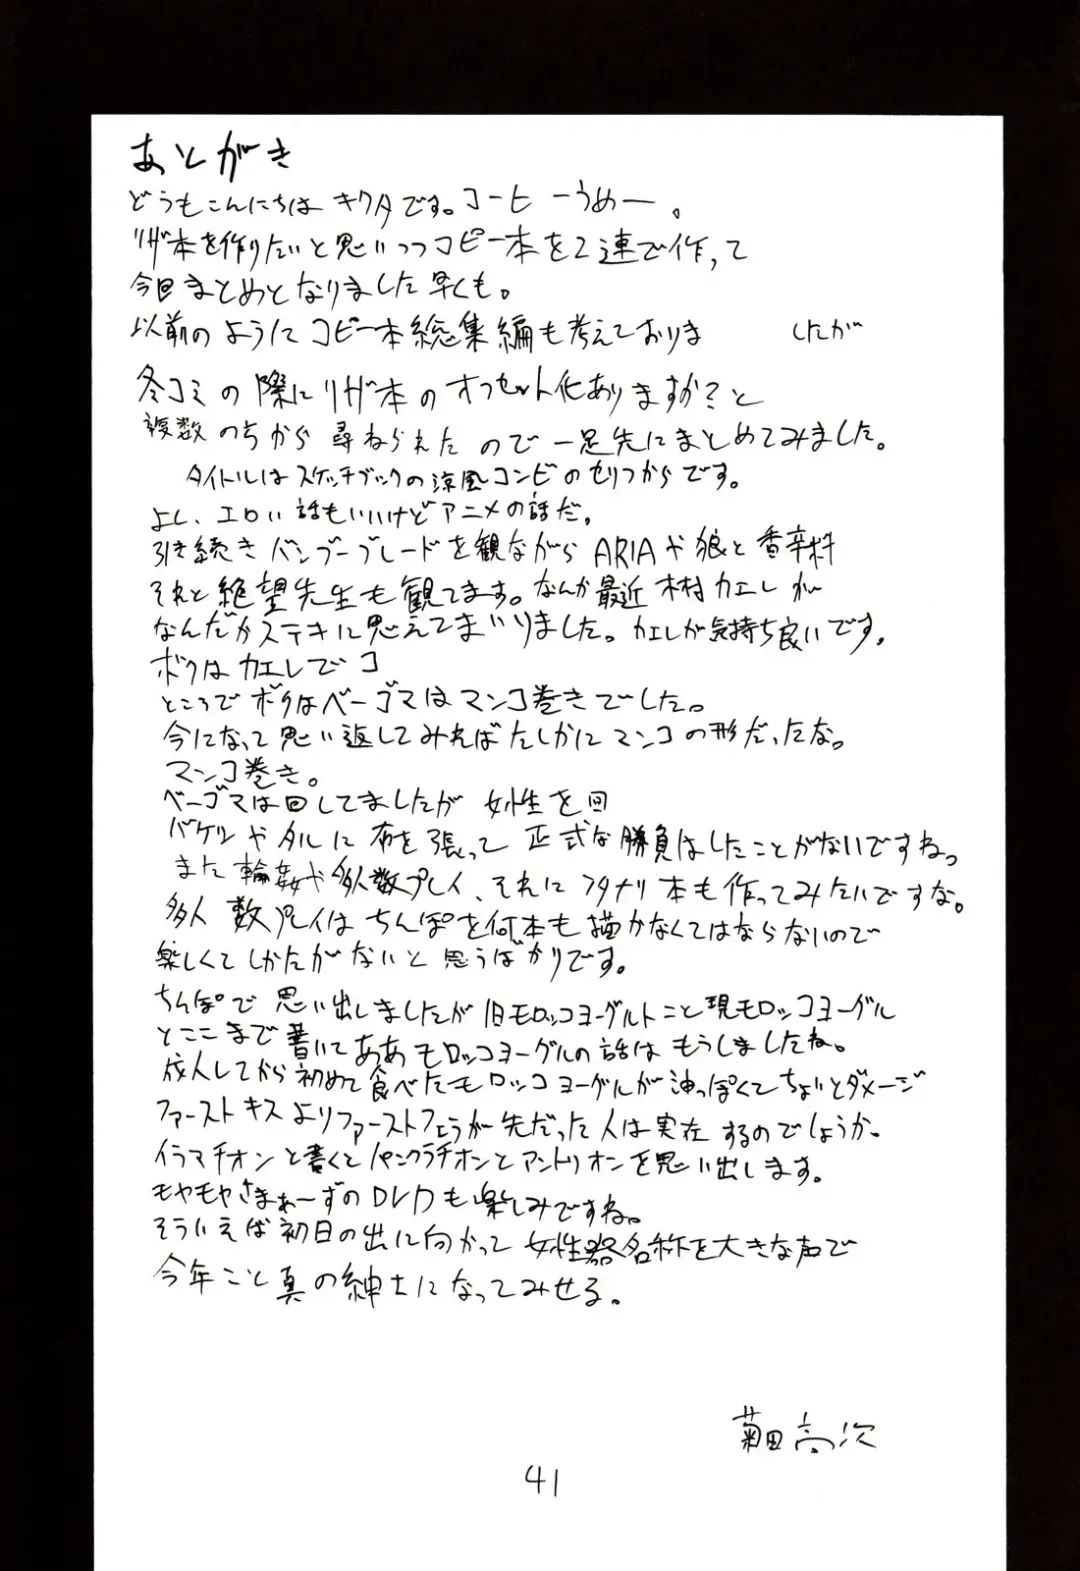 あとがき
どうもこんにちは キクタです。コーヒーうめー。
リザ本を作りたいと思いつつコピー本を2連で作って
今回まとめとなりました早くも。
以前のようにコピー本総集編も考えておりま したが
冬コミの際にリザ本のオフセット化ありますか?と
複数のちから尋ねられたので一足先にまとめてみました。
タイトルはスケッチブックの涼風コンビのセリフからです。
よし、エロい話もいいけどアニメの話だ。
引き続きバンブーブレードを観ながらARIAや狼と香辛料
それと絶望先生も観てます。なんか最近 木村カエレが
なんだかステキに思えてまいりました。カエレが気持ち良いです。
ボクはカエレでコ
ところでボクはベーゴマはマンコ巻きでした。
今になって思い返してみればたしかにマンコの形だったな。
マンコ巻き。
ベーゴマは回してましたが 女性を回
バケツやタルに布を張って正式な勝負はしたことがないですねっ
また輪姦や多人数プレイ、それにフタナリ本も作ってみたいですな。
多人数プレイはちんぽを何本も描かなくてはならないので
楽しくてしかたがないと思うばかりです。
ちんぽで思い出しましたが旧モロッコヨーグルトこと現モロッコヨーグル
とここまで書いてああモロッコヨーグルの話はもうしましたね。
成人してから初めて食べたモロッコヨーグルが油っぽくてちょいとダメージ
ファーストキスよりファーストフェラが先だった人は実在するのでしょうか。
イラマチオンと書くとパンクラチオンとアントリオンを思い出します。
モヤモヤさまぁ〜ずのDVDも楽しみですね。
そういえば初日の出に向かって女性器名称を大きな声で
今年こそ真の紳士になってみせる。
菊田高次
41